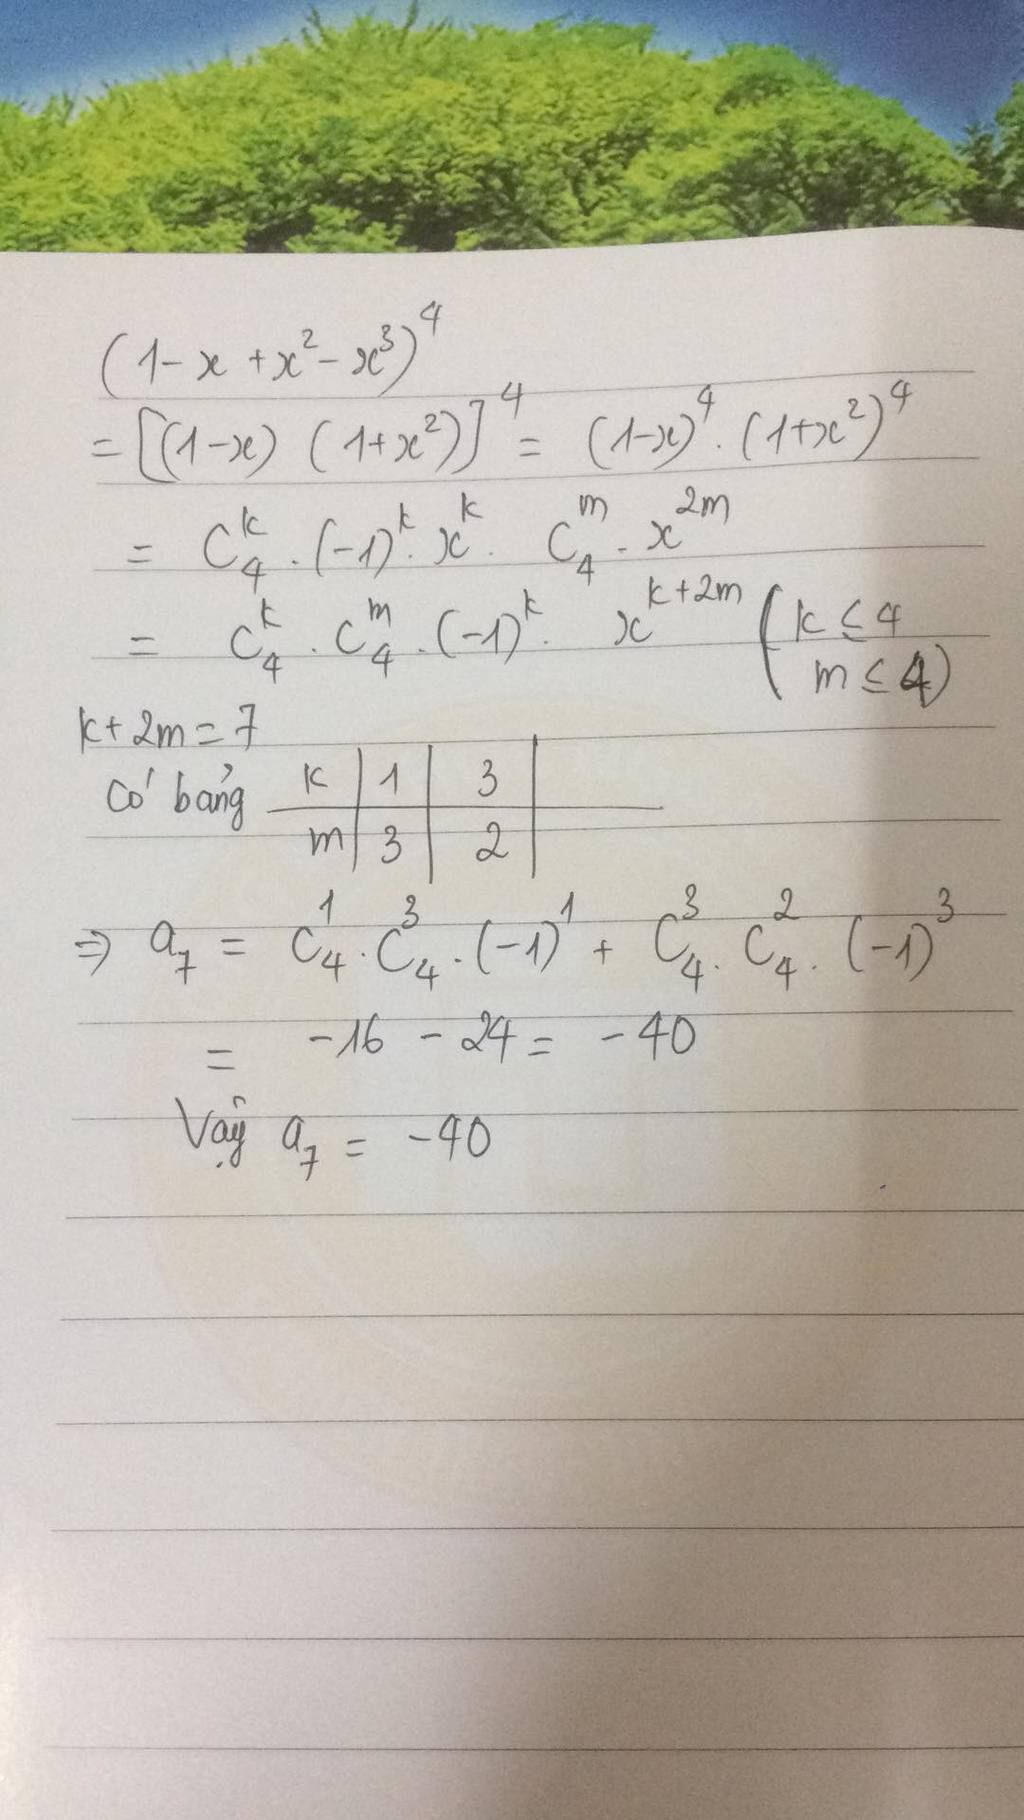 (1-x+x²-x³)⁴
= [(1-x) (1+x²)]⁴ = (1-x)⁴ . (1+x²)⁴
= C₄ᵏ . (-1)ᵏ . xᵏ . C₄ᵐ . x²ᵐ
= C₄ᵏ . C₄ᵐ . (-1)ᵏ . xᵏ⁺²ᵐ (k ≤ 4
m ≤ 4)
k+2m = 7
Có bảng k | 1 | 3 |
m | 3 | 2 |
⇒ a₇ = C₄¹ . C₄³ . (-1)¹ + C₄³ . C₄² . (-1)³
= -16 - 24 = -40
Vậy a₇ = -40